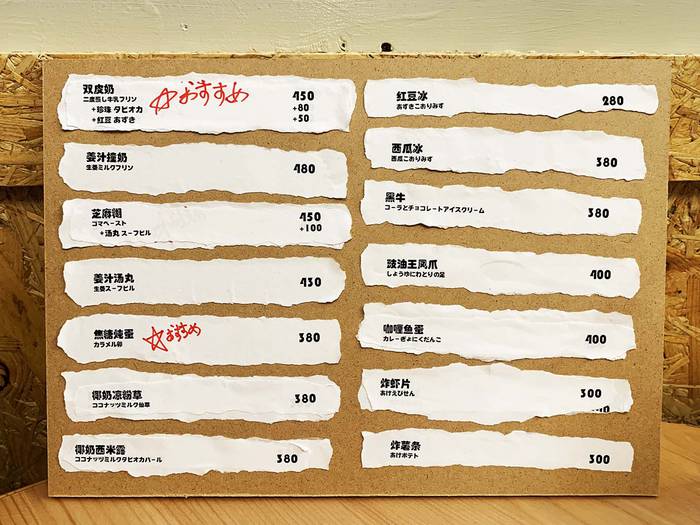 双皮奶 ☆おすすめ 450
二度蒸し牛乳プリン
+珍珠 タピオカ +80
+红豆 あずき +50
姜汁撞奶 480
生姜ミルクプリン
芝麻糊 450
ゴマペースト +100
+汤丸 スープビル
姜汁汤丸 430
生姜スープビル
焦糖炖蛋 ☆おすすめ 380
カラメル卵
椰奶凉粉草 380
ココナッツミルク仙草
椰奶西米露 380
ココナッツミルクタピオカパール
红豆冰 280
あずきこおりみず
西瓜冰 380
西瓜こおりみず
黑牛 380
コーラとチョコレートアイスクリーム
豉油王凤爪 400
しょうゆにわとりの足
咖喱鱼蛋 400
カレーぎょにくだんこ
炸虾片 300
あげえびせん
炸薯条 300
あげポテト